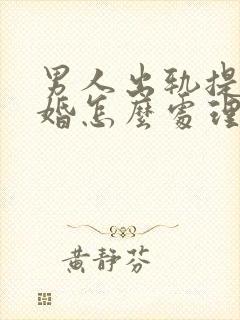 男人出轨提
婚怎麼處理
黃靜芬